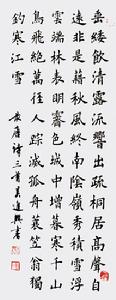 垂緌飲清露流響出疏桐居高聲自
遠非是藉秋風終南陰嶺秀積雪浮
雲端林表明霽色城中增暮寒千山
鳥飛絕萬徑人踪滅孤舟蓑笠翁獨
釣寒江雪 唐詩三首